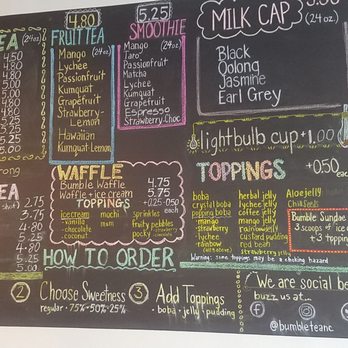 4.80
FRUIT TEA
(24oz)
Mango
Lychee
Passionfruit
Kumquat
Grapefruit
Strawberry-
Lemon
Hawaiian
Kumquat-Lemon
5.25
SMOOTHIE
(24oz)
Mango
Taro
Passionfruit
Matcha
Lychee
Kumquat
Grapefruit
Strawberry
Espresso
Strawberry-Choc
MILK CAP
(24oz)
Black
Oolong
Jasmine
Earl Grey
lightbulb cup +1.00
EA (24oz)
4.50
4.50
4.80
2.75
3.75
4.80
5.25
4.80
5.00
WAFFLE
Bumble Waffle 4.75
Waffle + ice cream 5.75
TOPPINGS +0.25-0.50
each
icecream
- vanilla
- chocolate
- coconut
mochi
mam
sprinkles
fruity pebbles
pocky
TOPPINGS +0.50
ea.
boba
crystal boba
popping boba
- mango
- strawberry
- lychee
- rainbow
herbal jelly
lychee jelly
coffee jelly
rainbow jelly
egg pudding
red bean
strawberry
Aloe jelly
Chia Seeds
Bumble Sundae
3 scoops of ice
+ 3 topping
Warning: some toppings may be a choking hazard
HOW TO ORDER
2 Choose Sweetness
regular · 75% · 50% · 25%
3 Add Toppings
· boba · jelly · pudding
We are social be
buzz us at...
@bumbleteanc